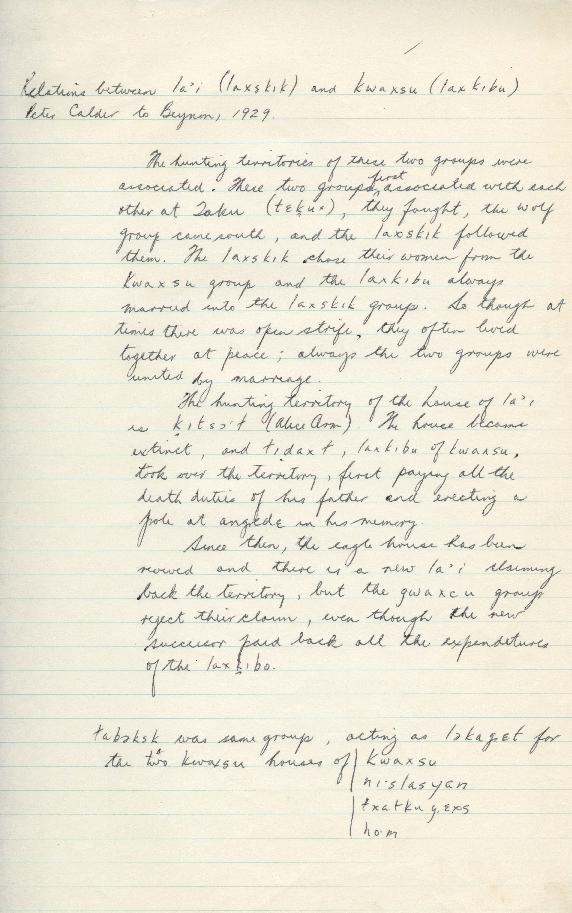 Relations between la'i (laxskik) and kwaxsu (laxkibu)
Peter Calder to Beynon, 1929.
The hunting territories of these two groups were
associated. These two groups first associated with each
other at Taku (tɛḳux), they fought, the wolf
group came south, and the laxskik followed
them. The laxskik chose their women from the
Kwaxsu group and the laxkibu always
married into the laxskik group. So though at
times there was open strife, they often lived
together at peace; always the two groups were
united by marriage.
The hunting territory of the house of la'i
is kitsɔ't (Alice Arm). The house became
extinct, and tidaxt, laxkibu of kwaxsu,
took over the territory, first paying all the
death duties of his father and erecting a
pole at angɛdɛ in his memory.
Since then, the eagle house has been
revived and there is a new la'i claiming
back the territory, but the gwaxcu group
reject their claim, even though the new
successor paid back all the expenditures
of the laxḳibo.
was same group, acting as for
the two Kwaxsu houses of kwaxsu
ni·slasyan
txatkug.exs
ho·m